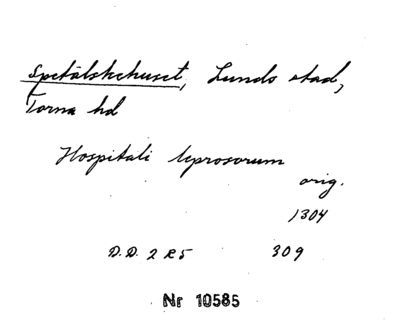 Spetälskehuset, Lunds stad,
Torna hd
Hospitali leprosorum
orig.
1304
D.D. 2 R 5 309
Nr 10585